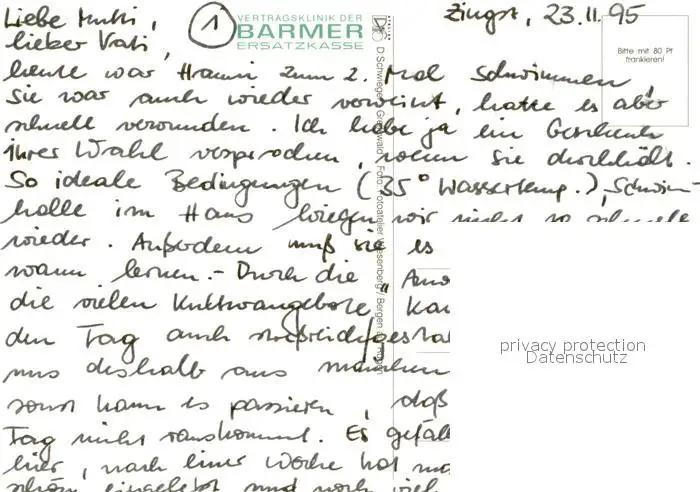 Liebe Mutti,
lieber Vati,
1
VERTRAGSKLINIK DER
BARMER
ERSATZKASSE
Zingst, 23.11.95
Bitte mit 80 Pf
frankieren!
heute war Hanni zum 2. Mal schwimmen
Sie war auch wieder verweint, hatte es aber
schnell verwunden. Ich habe ja ein Geschenk
ihrer Wahl versprochen, wenn sie durchhält.
So ideale Bedingungen (35° Wassertemp.), Schwimm-
halle im Haus kriegen wir nicht so schnell
wieder. Außerdem muß sie es
wann lernen. - Durch die
die vielen Kulturangebote
den Tag auch
uns deshalb aus
sonst kann es passieren, daß
Tag nicht rauskommt. Es gefäll
hier, nach einer Woche hat
schön eingelebt und noch viel
D.Schwieger, Greifswald Foto: Fotoatelier Wiesenberg / Bergen a. Rügen
privacy protection
Datenschutz